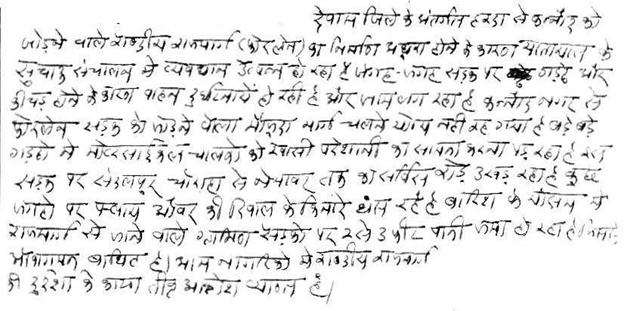 देवास जिले के अंतर्गत हरदा से कन्नौद को
जोड़ने वाले राष्ट्रीय राजमार्ग (फोरलेन) का निर्माण अधूरा होने के कारण यातायात के
सुचारु संचालन में व्यवधान उत्पन्न हो रहा है जगह-जगह सड़क पर गड्ढे और
कीचड़ होने के कारण वाहन दुर्घटनायें हो रही है और जाम लग रहा है कन्नौद नगर से
फोरलेन सड़क को जोड़ने वाला मार्ग चलने योग्य नही रह गया है बड़े बड़े
गड्ढो से मोटर साईकल चालको को खासी परेशानी का सामना करना पड़ रहा है इस
सड़क पर संदलपुर चौराहा से नेमावर तक का सर्विस रोड़ उखड़ रहा है कुछ
जगहो पर फ्लाय ओवर की दिवाल के किनारे धंस रहे है बारिश के मौसम में
राजमार्ग से जाने वाले ग्रामिण सड़को पर 2 से 3 फीट पानी जमा हो रहा है जिससे
आवागमन बाधित है। आम नागरिको में राष्ट्रीय राजमार्ग
की दुर्दशा के कारण तीव्र आक्रोश व्याप्त है।